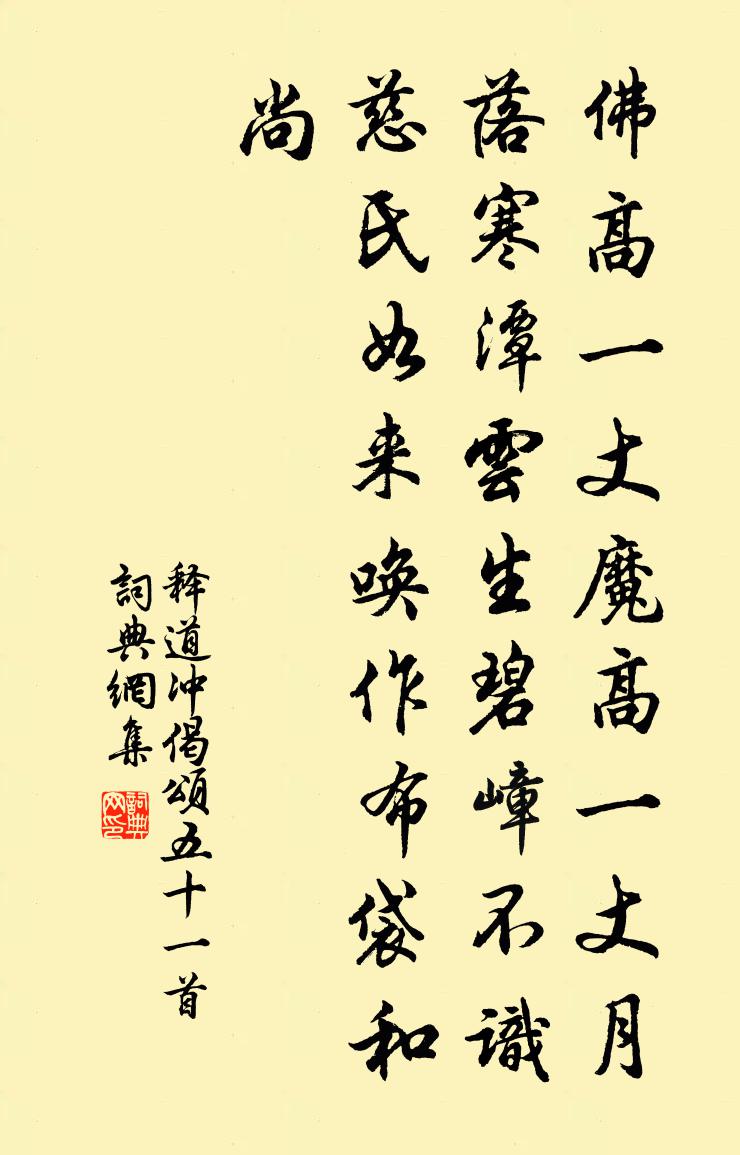 佛高一丈魔高一丈月
落寒潭雲生碧嶂不識
慈氏如来唤作布袋和
尚
释道冲偈頌五十一首
詞典網集
詞典网印